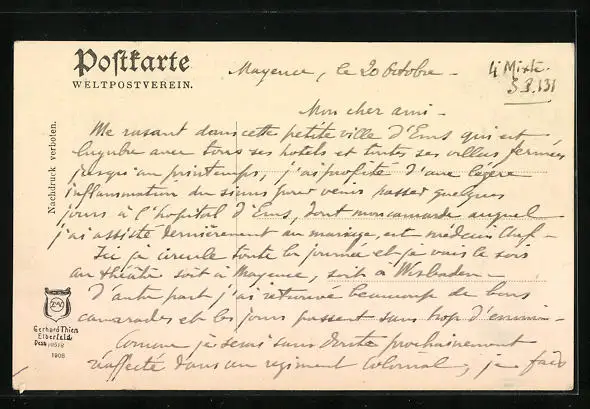 Postkarte
WELTPOSTVEREIN.
Nachdruck verboten.
4 Mixte.
S.P. 131
Mayence, le 20 Octobre -
Mon cher ami -
Me rasant dans cette petite ville d'Ems qui est
lugubre avec tous ses hotels et toutes ses villas fermées
jusqu'au printemps, j'ai profité d'une légère
inflammation du sinus pour venir passer quelques
jours à l'hopital d'Ems, dont mon camarade auquel
j'ai assisté dernièrement au mariage, est médecin Chef -
Ici je circule toute la journée et je vais le soir
au théâtre soit à Mayence, soit à Wisbaden -
D'autre part j'ai retrouvé beaucoup de bons
camarades et les jours passent sans trop d'ennui -
Comme je serai sans doute prochainement
réaffecté dans un régiment Colonial, je fais
Gerhard Thien
Elberfeld
1908